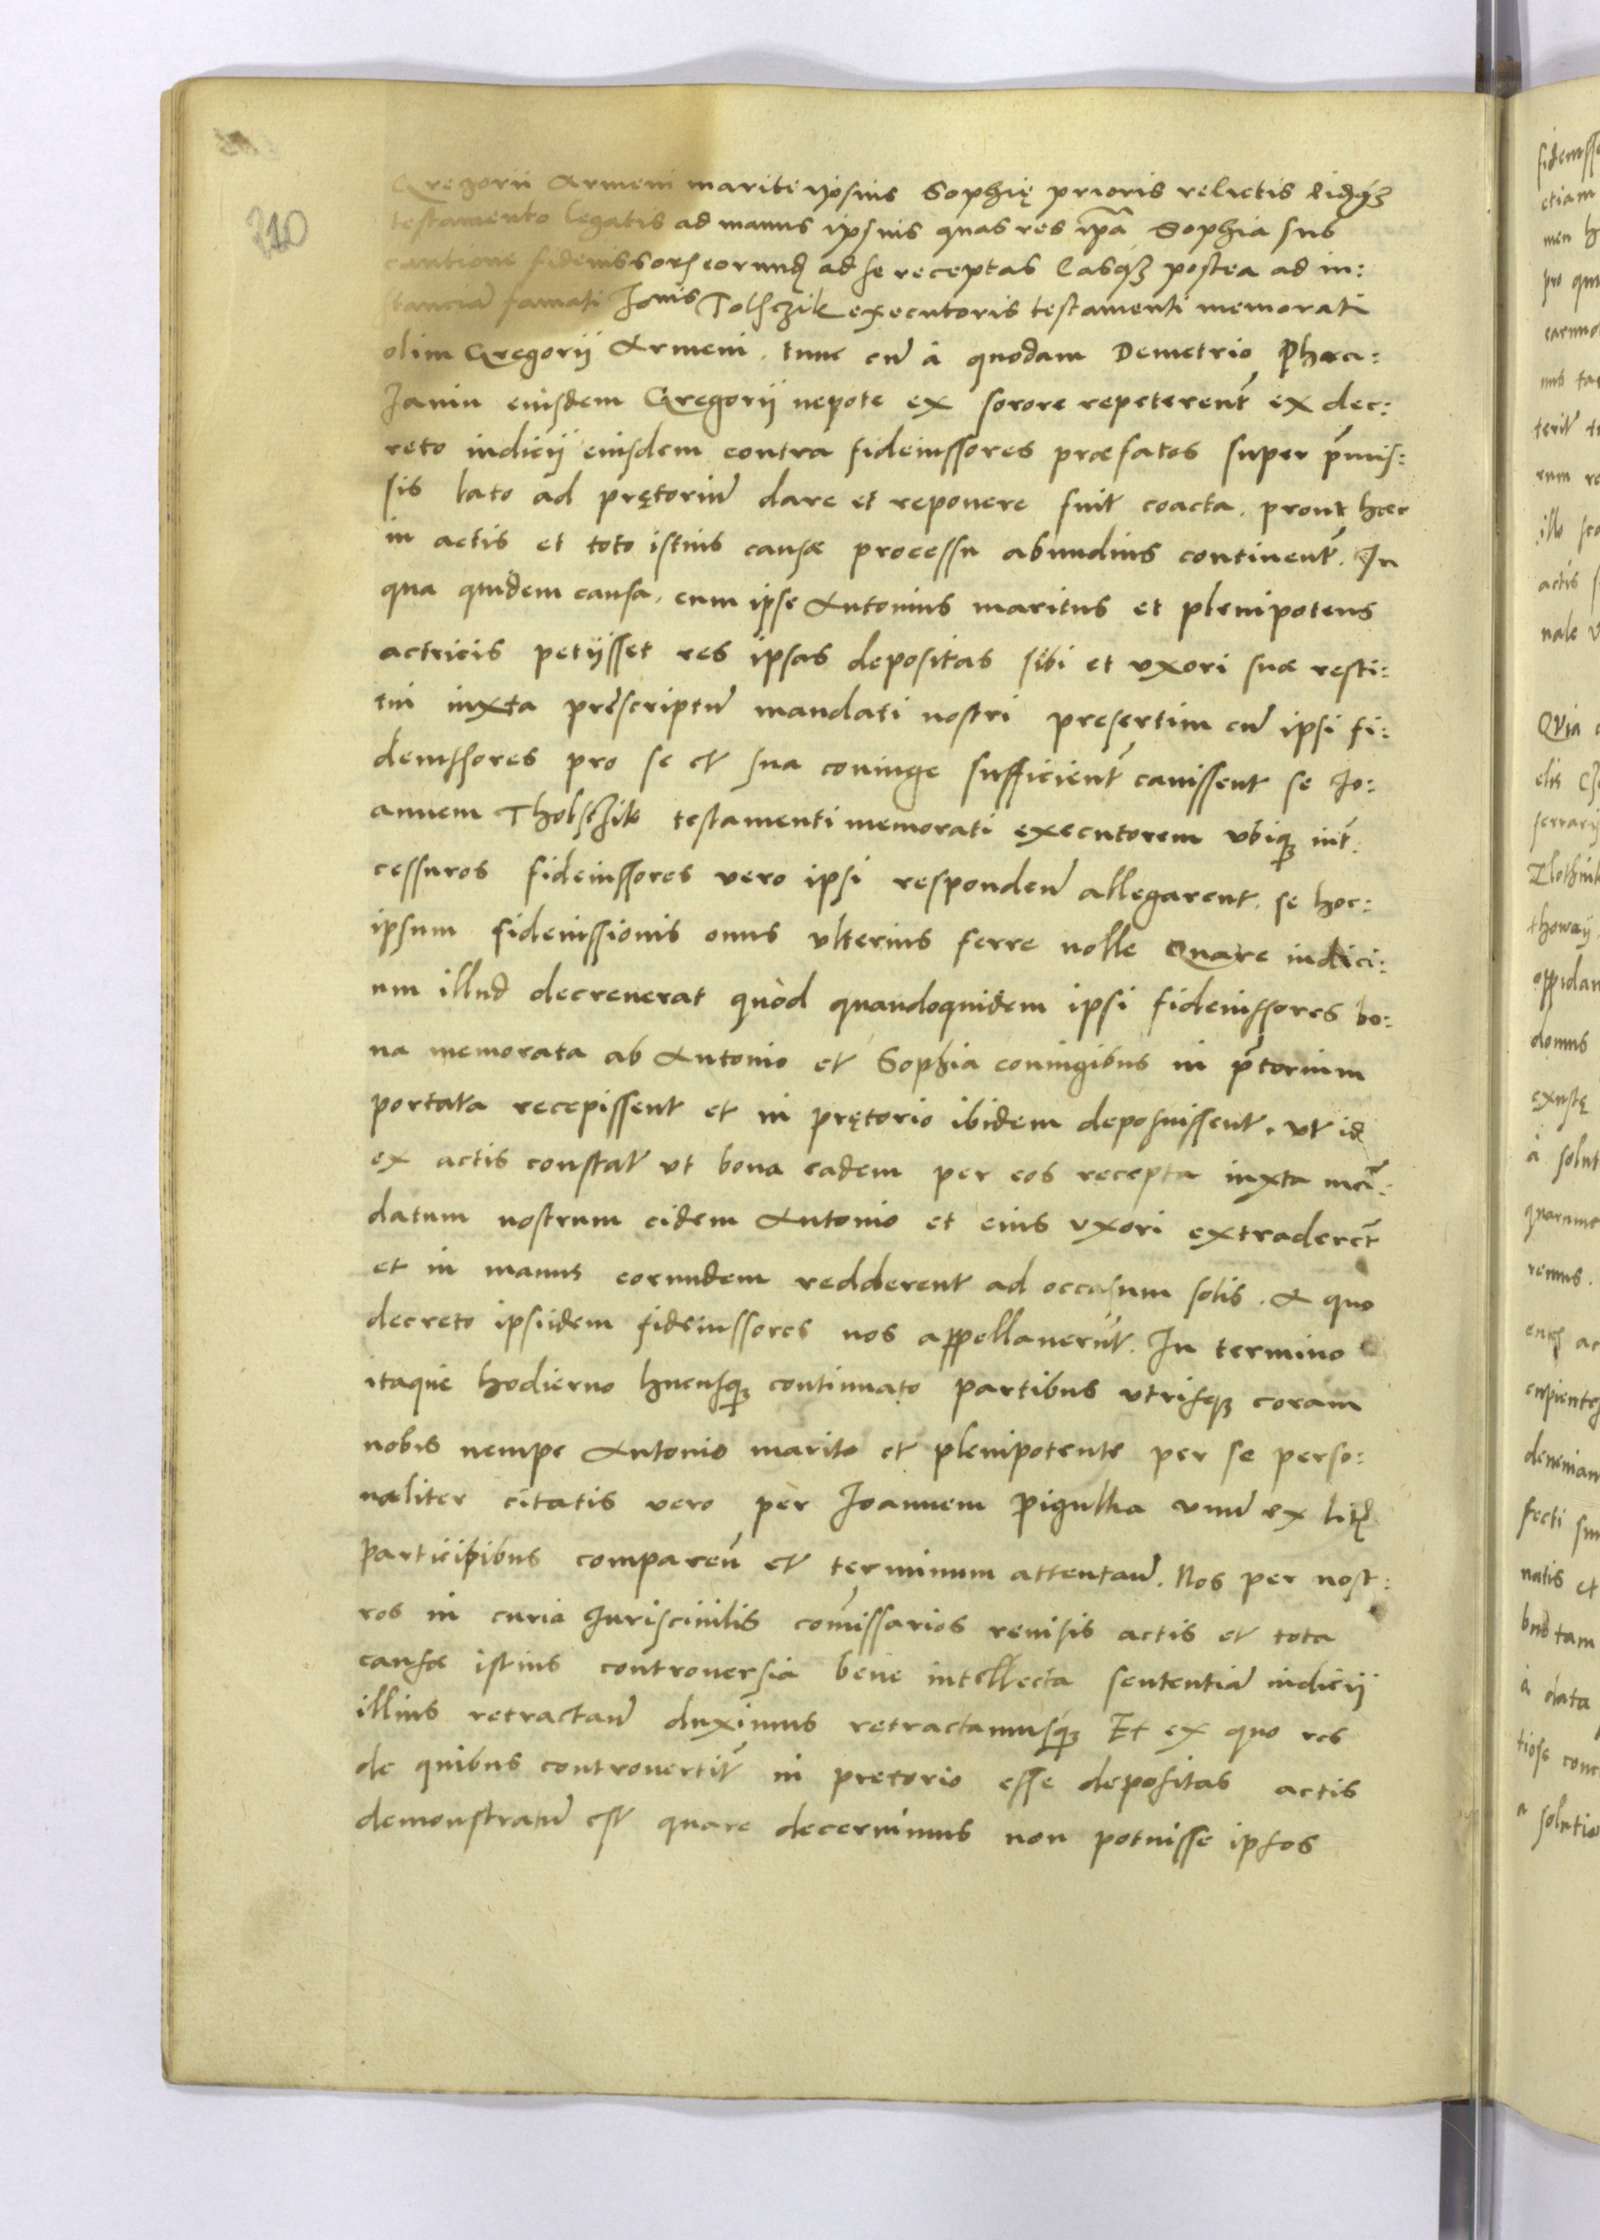 210
Gregorii Armeni mariti ipsius Sophię prioris relictis eidẽq3
testamento legatis ad manus ipsius quas res ip̃a Sophia sub
cautione fideiussorũ eorund ad se receptas easq3 postea ad in:
stanciã famati Joñis Tolsczik executoris testamenti memorati
olim Gregorij Armeni. tunc cũ à quodam Demetrio
eiusdem Gregorij nepote ex sorore repeterent̃ ex dec:
reto iudicij eiusdem contra fideiussores præfatos super p̃mis:
sis lato ad prętoriũ dare et reponere fuit coacta. prout hæc
in actis et toto istius causæ processu abundius continent̃. In
qua quidem causa. cum ipse Antonius maritus et plenipotens
actricis petijsset res ipsas depositas sibi et uxori suæ resti:
tui iuxta prescriptũ mandati nostri presertim cũ ipsi fi:
deiussores pro se et sua coniuge sufficient̃ cauissent se Jo:
annem Tholsczik testamenti memorati executorem ubiq3 int̃:
cessuros fideiussores vero ipsi respondeñ allegarent. se hoc:
ipsum fideiussionis onus ulterius ferre nolle Quare iudici:
um illud decreuerat quòd quandoquidem ipsi fideiussores bo:
na memorata ab Antonio et Sophia coniugibus in p̃torium
portata recepissent et in prętorio ibidem deposuissent. ut id
ex actis constat ut bona eadem per eos recepta iuxta mã:
datum nostrum eidem Antonio et eius uxori extraderẽt
et in manus eorundem redderent ad occasum solis. A quo
decreto ipsiidem fideiussores nos appellauerũt. In termino
itaque hodierno hucusq3 continuato partibus utrisq3 coram
nobis nempe Antonio marito et plenipotente per se perso:
naliter citatis vero per Joannem Pigulka unũ ex litis
participibus compareñ et terminum attentañ. Nos per nost:
ros in curia Juriscivilis com̃issarios reuisis actis et tota
causæ istius controuersia bene intellecta sententiã iudicij
illius retractañ duximus retractamusq3 Et ex quo res
de quibus controuertit̃ in pretorio esse depositas actis
demonstratũ est quare decernimus non potuisse ipsos